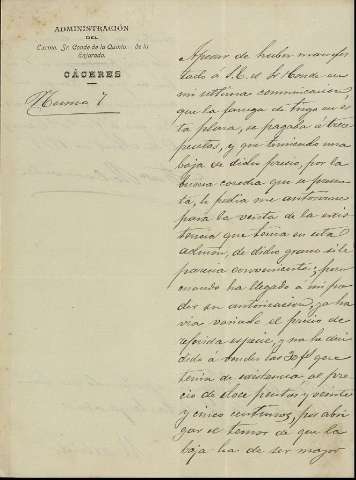 ADMINISTRACIÓN
DEL
Excmo. Sr. Conde de la Quinta de la
Enjarada.
CÁCERES
Apesar de haber manifes
tado á S. E. el Sr. Conde en
mi última comunicacion,
que la fanega de trigo en es
ta plaza, se pagaba á trece
pesetas, y que temiendo una
baja de dicho precio, por la
buena cosecha que se presen
ta, le pedia me autorizase
para la venta de la exis
tencia que tenia en esta
admón, de dicho grano si le
parecia conveniente; pero
cuando ha llegado á mi po
der su autorizacion, ya ha
via variado el precio de
referida especie, y me he deci
dido á vender las 20 fs que
tenia de existencia al pre
cio de doce pesetas y veinte
y cinco centimos, por abri
gar el temor de que la
baja ha de ser mayor